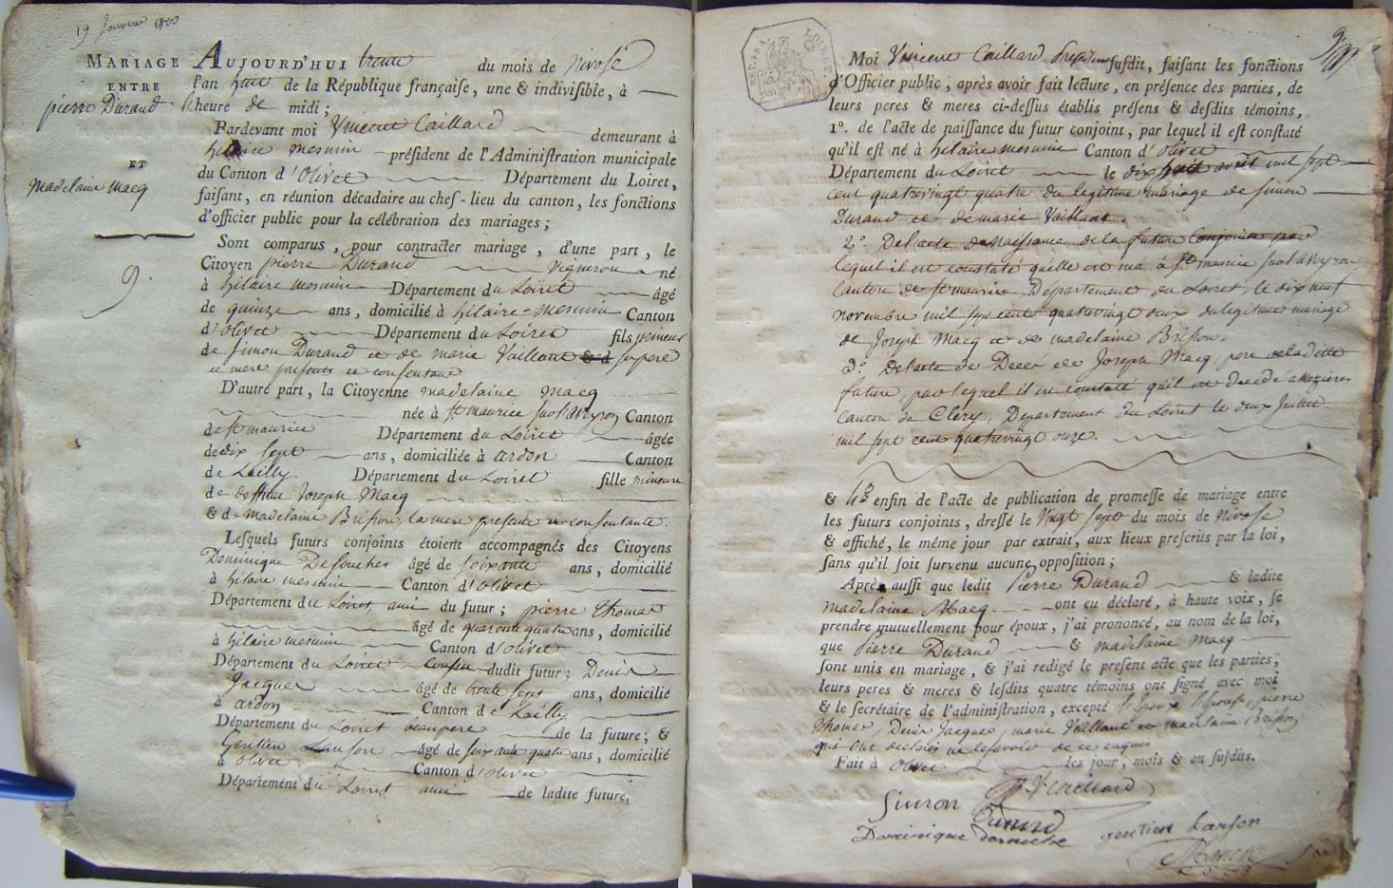 19 Janvier 1800
MARIAGE
ENTRE
pierre Durand
ET
Madelaine Macq
9.
AUJOURD'HUI trente du mois de Nivose
l'an huit de la République françaiſe, une & indiviſible, à
heure de midi;
Pardevant moi Vincent Caillard demeurant à
hilaire mesmin préſident de l'Adminiſtration municipale
du Canton d'Olivet Département du Loiret,
faiſant, en réunion décadaire au chef-lieu du canton, les fonctions
d'officier public pour la célébration des mariages;
Sont comparus, pour contracter mariage, d'une part, le
Citoyen pierre Durand Vigneron né
à hilaire mesmin Département du Loiret âgé
de quinze ans, domicilié à hilaire-mesmin Canton
d'olivet Département du Loiret fils mineur
de Simon Durand et de marie Vaillant ſes pere
et mere preſents et conſentans
D'autre part, la Citoyenne madelaine macq
née à St maurice ſur laveyron Canton
de St maurice Département du Loiret âgée
de dix ſept ans, domiciliée à ardon Canton
de Lailly Département du Loiret fille mineure
de deffunt Joseph Macq
& de Madelaine Briſſon, la mere preſente et conſentante.
Leſquels futurs conjoints étoient accompagnés des Citoyens
Dominique âgé de ſoixante ans, domicilié
à hilaire mesmin Canton d'olivet
Département du Loiret, ami du futur; pierre Thomas
âgé de quarante quatre ans, domicilié
à hilaire mesmin Canton d'olivet
Département du Loiret Couſin dudit futur; Denis
Jacques âgé de trente ſept ans, domicilié
à ardon Canton de Lailly
Département du Loiret beaupere de la future; &
Gentien Lanson âgé de ſoixante quatre ans, domicilié
à olivet Canton d'olivet
Département du Loiret ami de ladite future;
Moi Vincent Caillard Préſident ſuſdit, faiſant les fonctions
d'Officier public, après avoir fait lecture, en préſence des parties, de
leurs peres & meres ci-deſſus établis préſens & deſdits témoins,
1°. de l'acte de naiſſance du futur conjoint, par lequel il eſt conſtaté
qu'il eſt né à hilaire mesmin Canton d'olivet
Département du Loiret le dix huit avril mil ſept
cent quatrevingt quatre du legitime mariage de Simon
Durand et de marie Vaillant.
2°. De l'acte de Naiſſance de la future Conjointe par
lequel il est constaté quelle est née à St maurice ſur laveyron
Canton de St maurice Département du Loiret, le dix neuf
novembre mil ſept cent quatrevingt deux du legitime mariage
de Joseph Macq et de madelaine Briſſon.
3°. De l'acte de Deces de Joseph Macq, pere de la ditte
future, par lequel il est constaté qu'il est decedé a mezieres
Canton de Clery, Département du Loiret le deux Juillet
mil ſept cent quatrevingt onze.
& 4° enfin de l'acte de publication de promeſſe de mariage entre
les futurs conjoints, dreſſé le Vingt ſept du mois de Nivoſe
& affiché, le même jour par extrait, aux lieux preſcrits par la loi,
ſans qu'il ſoit ſurvenu aucune oppoſition;
Après auſſi que ledit Pierre Durand & ladite
Madelaine Macq ont eu déclaré, à haute voix, ſe
prendre mutuellement pour époux, j'ai prononcé, au nom de la loi,
que Pierre Durand & madelaine macq
ſont unis en mariage, & j'ai redigé le preſent acte que les parties,
leurs peres & meres & leſdits quatre témoins ont ſigné avec moi
& le ſecrétaire de l'adminiſtration, excepté l'epoux, l'épouſe, pierre
Thomas, Denis Jacques, marie Vaillant et madelaine Briſſon
qui ont déclaré ne le ſavoir de ce enquis
Fait à Olivet les jour, mois & an ſuſdits.
V Caillard
Simon Durand
Dominique
gentien Lanson